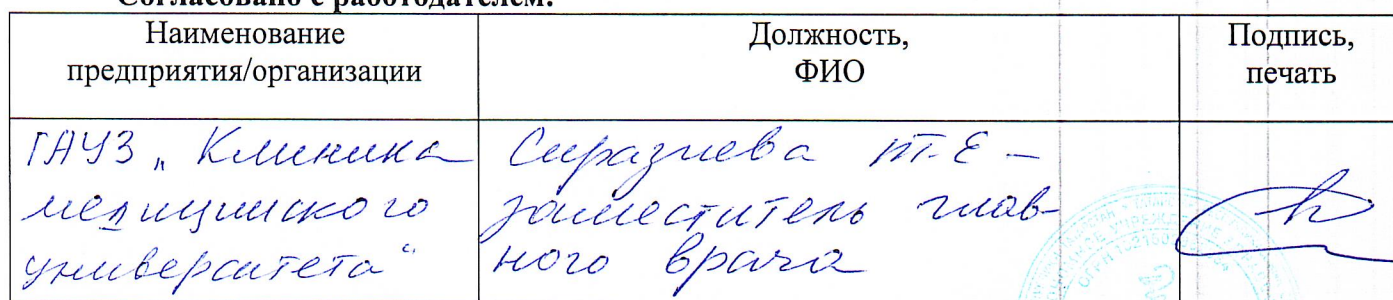 Согласовано с работодателем:
Наименование
предприятия/организации
Должность,
ФИО
Подпись,
печать
ГАУЗ „Клиника
медицинского
университета“
Сиразиева Т.Е –
заместитель глав-
ного врача